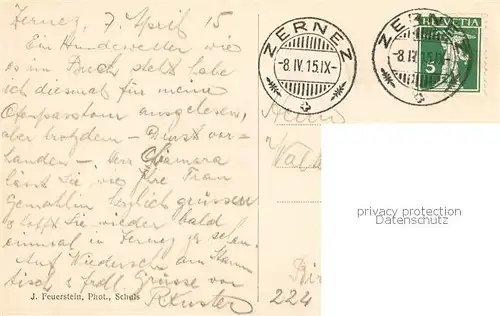 Zernez, 7. April 15
Ein Hundewetter wie
es im Buch steht habe
ich diesmal für meine
Ofenpasstour ausgelesen,
aber trotzdem - Dunst vor-
handen -. Herr Chiamara
lässt Sie wie Ihre Frau
Gemahlin herzlich grüssen
& hofft Sie wieder bald
einmal in Zernez zu sehen.
Auf Wiedersehn am Stamm-
tisch & frdl. Grüsse von
J. Feuerstein, Phot., Schuls
ZERNEZ
-8.IV.15.IX-
ZERNEZ
-8.IV.15.IX-
HELVETIA
5
Herrn
224
privacy protection
Datenschutz